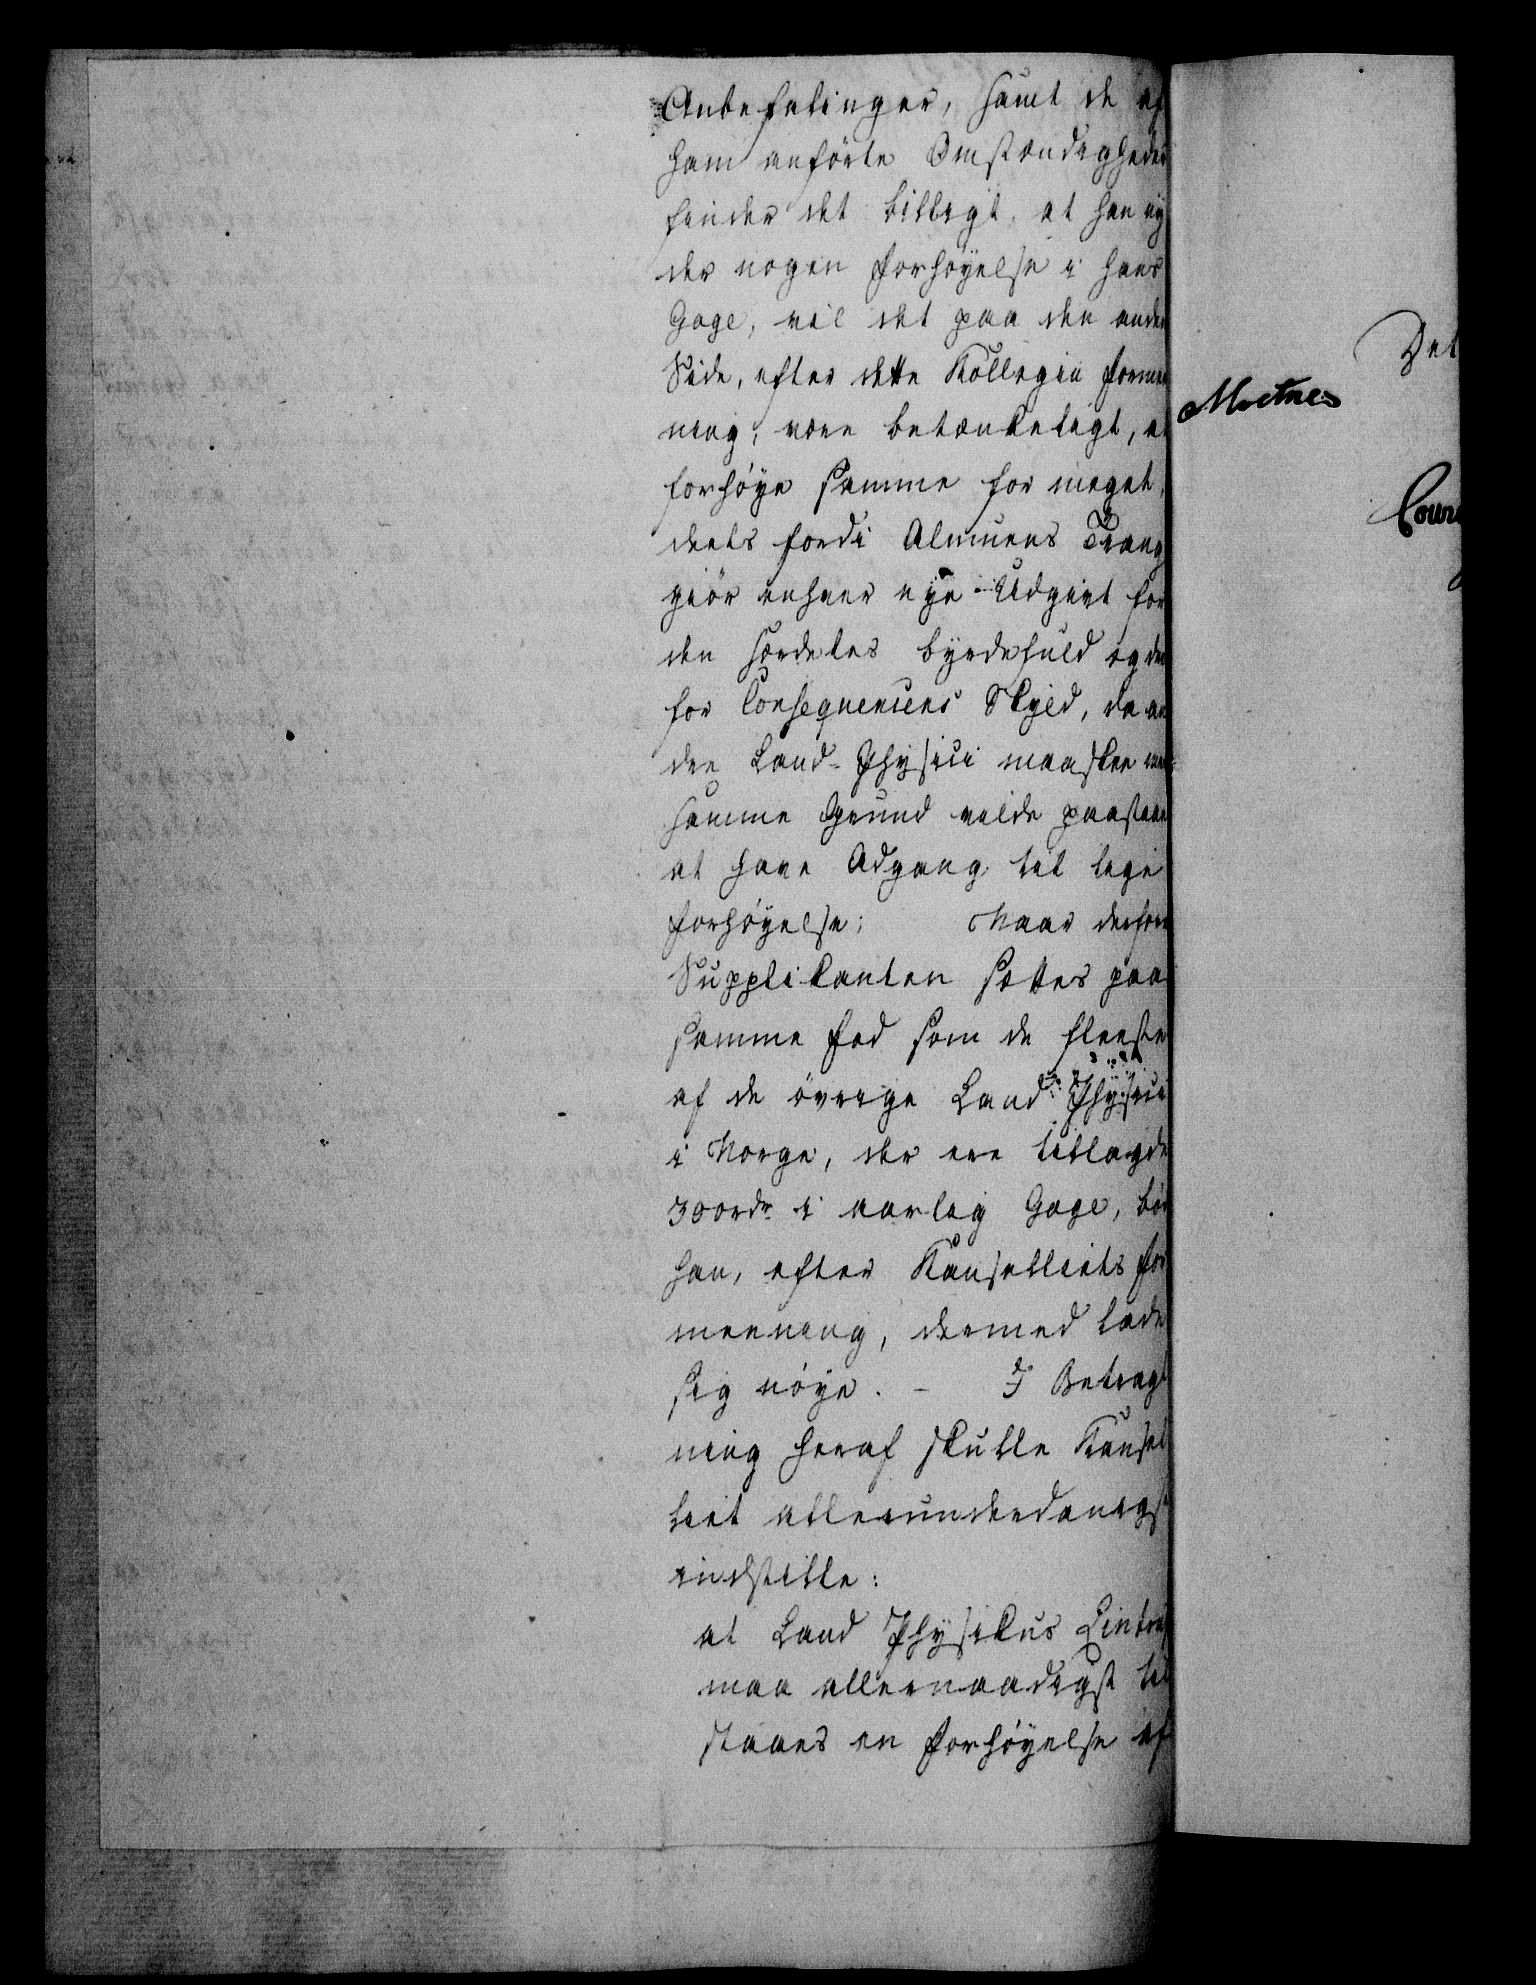 Anbefalinger, samt de af
ham anførte Omstændigheder
finder det billigt, at han ny
der nogen Forhøyelse i hans
Gage, vil det paa den anden
Side, efter dette Kollegii Formee
ning, være betænkeligt, at
forhøye samme for meget,
deels fordi Almuens Trang
giör enhver nye Udgivt for
den særdeles byrdefuld og deels
for Consequencens Skyld, da an
dre Land-Physici maaskee med
samme Grund vilde paastaae
at have Adgang til lige
Forhøyelse; Naar derfore
Supplikanten sættes paa
samme Fod som de fleeste
af de övrige Land Physici
i Norge, der ere tillagde
300rdr i aarlig Gage, bör
han, efter Kanselliets For
meening, dermed lade
sig nöye. - I Betragt
ning heraf skulle Kansel
liet allerunderdanigst
indstille:
at Land Physikus
maa allernaadigst til
staaes en Forhøyelse af
Det
Cour